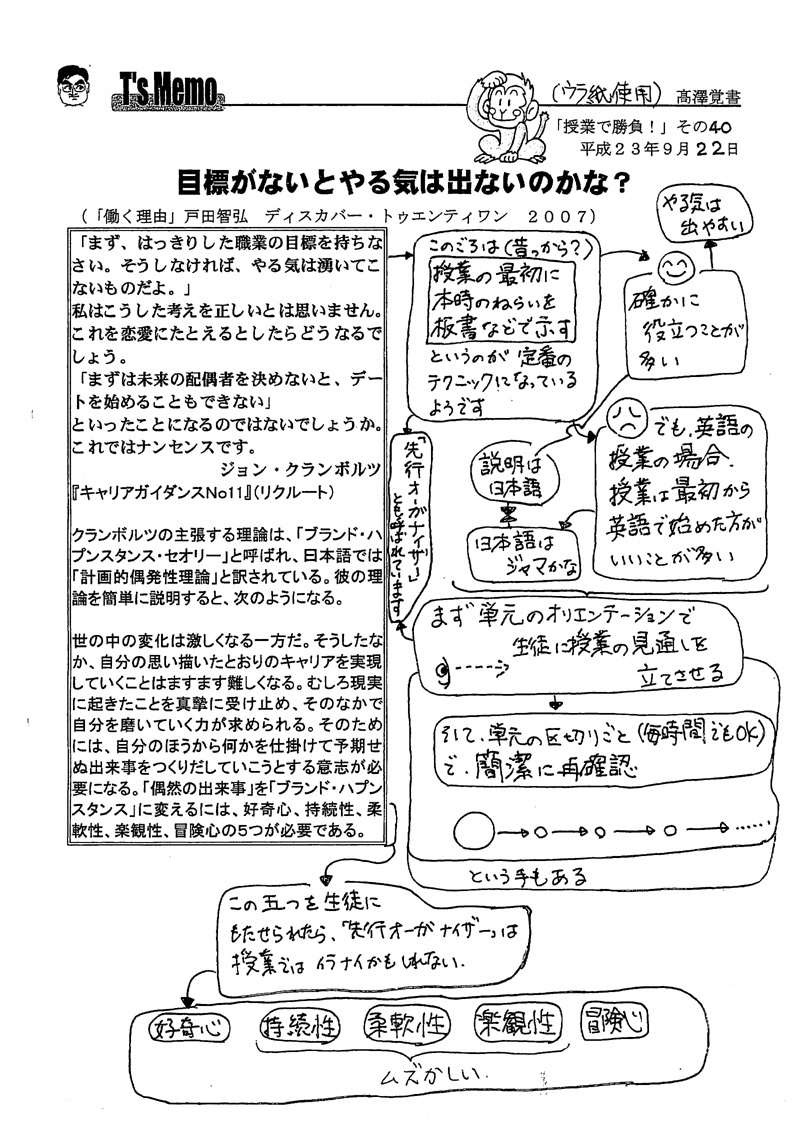 T's Memo
(ウラ紙使用)
高澤覚書
「授業で勝負！」その40
平成２３年９月２２日
目標がないとやる気は出ないのかな？
（「働く理由」戸田智弘　ディスカバー・トゥエンティワン　２００７）
「まず、はっきりした職業の目標を持ちな
さい。そうしなければ、やる気は湧いてこ
ないものだよ。」
私はこうした考えを正しいとは思いません。
これを恋愛にたとえるとしたらどうなるで
しょう。
「まずは未来の配偶者を決めないと、デー
トを始めることもできない」
といったことになるのではないでしょうか。
これではナンセンスです。
ジョン・クランボルツ
『キャリアガイダンスNo11』（リクルート）
クランボルツの主張する理論は、「ブランド・ハ
プンスタンス・セオリー」と呼ばれ、日本語では
「計画的偶発性理論」と訳されている。彼の理
論を簡単に説明すると、次のようになる。
世の中の変化は激しくなる一方だ。そうしたな
か、自分の思い描いたとおりのキャリアを実現
していくことはますます難しくなる。むしろ現実
に起きたことを真摯に受け止め、そのなかで
自分を磨いていく力が求められる。そのため
には、自分のほうから何かを仕掛けて予期せ
ぬ出来事をつくりだしていこうとする意志が必
要になる。「偶然の出来事」を「ブランド・ハプン
スタンス」に変えるには、好奇心、持続性、柔
軟性、楽観性、冒険心の５つが必要である。
このごろは(昔っから？)
授業の最初に
本時のねらいを
板書などで示す
というのが定番の
テクニックになっている
ようです
確かに
役立つことが
多い
やる気は
出やすい
「先行オーガナイザー」
とも呼ばれています
でも、英語の
授業の場合、
授業は最初から
英語で始めた方が
いいことが多い
説明は
日本語
日本語は
ジャマかな
まず単元のオリエンテーションで
生徒に授業の見通しを
立てさせる
そして、単元の区切りごと(毎時間でもOK)
で、簡潔に再確認
という手もある
この五つを生徒に
もたせられたら、「先行オーガナイザー」は
授業ではイラナイかもしれない.
好奇心 持続性 柔軟性 楽観性 冒険心
ムズかしい.